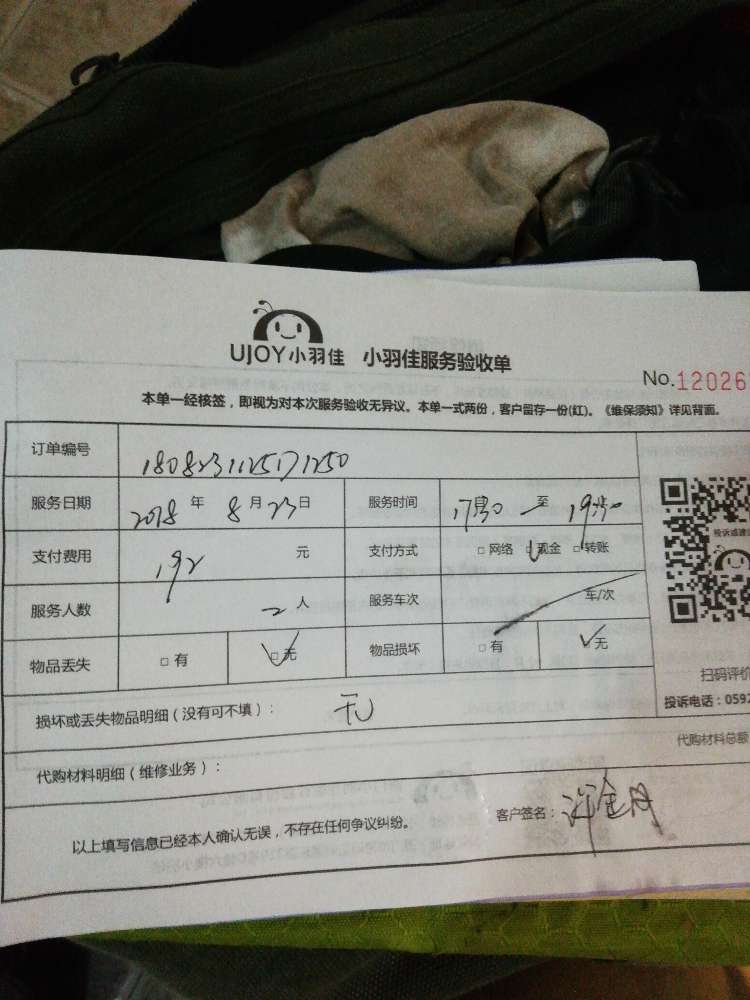 UJOY小羽佳 小羽佳服务验收单
No.12026
本单一经核签，即视为对本次服务验收无异议。本单一式两份，客户留存一份(红)。《维保须知》详见背面。
订单编号 1808231125171250
服务日期 2018 年 8 月 23 日 服务时间 17 至 19
支付费用 192 元 支付方式 □网络 □现金 □转账
服务人数 二 人 服务车次 车/次
物品丢失 □有 □无 物品损坏 □有 □无
扫码评价
投诉电话：0592
损坏或丢失物品明细（没有可不填）： 无
代购材料总额
代购材料明细（维修业务）：
以上填写信息已经本人确认无误，不存在任何争议纠纷。 客户签名：许金月